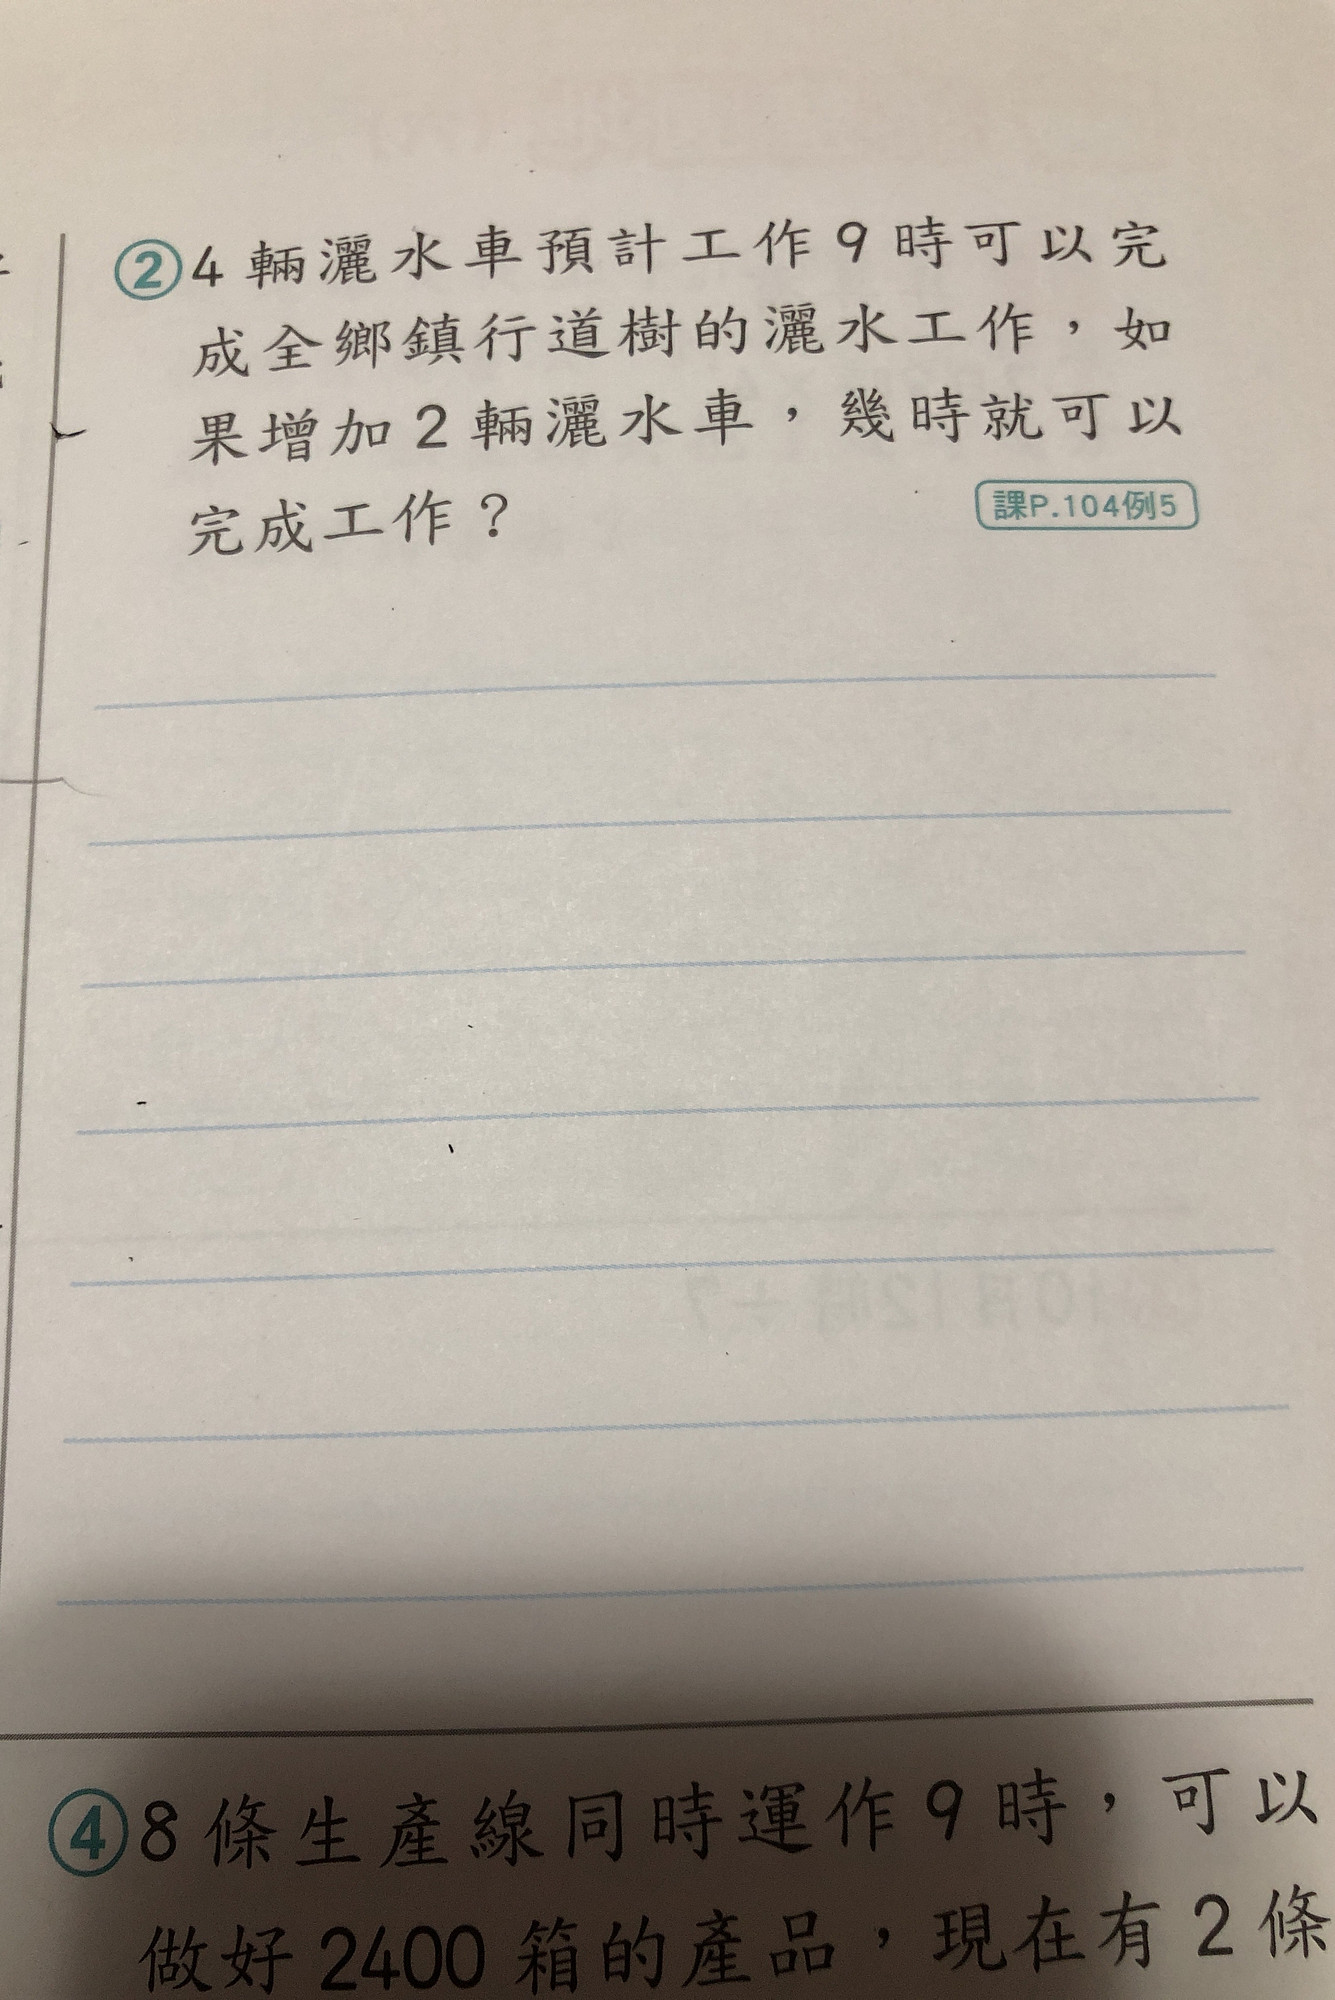 ②4輛灑水車預計工作9時可以完
成全鄉鎮行道樹的灑水工作，如
果增加2輛灑水車，幾時就可以
完成工作？
課P.104例5
④8條生產線同時運作9時，可以
做好2400箱的產品，現在有2條